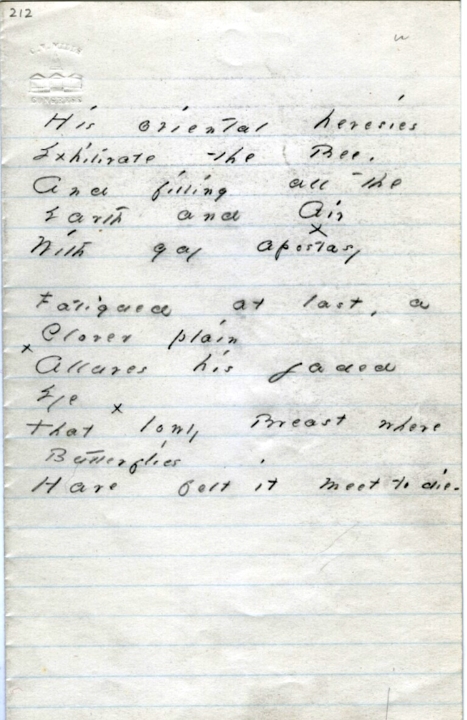 212
His oriental heresies
Exhilirate the Bee,
And filling all the
Earth and Air
With gay apostasy
Fatigued at last, a
x Clover plain
Allures his jaded
Eye
That lowly Breast where
Butterflies
Have felt it meet to die -